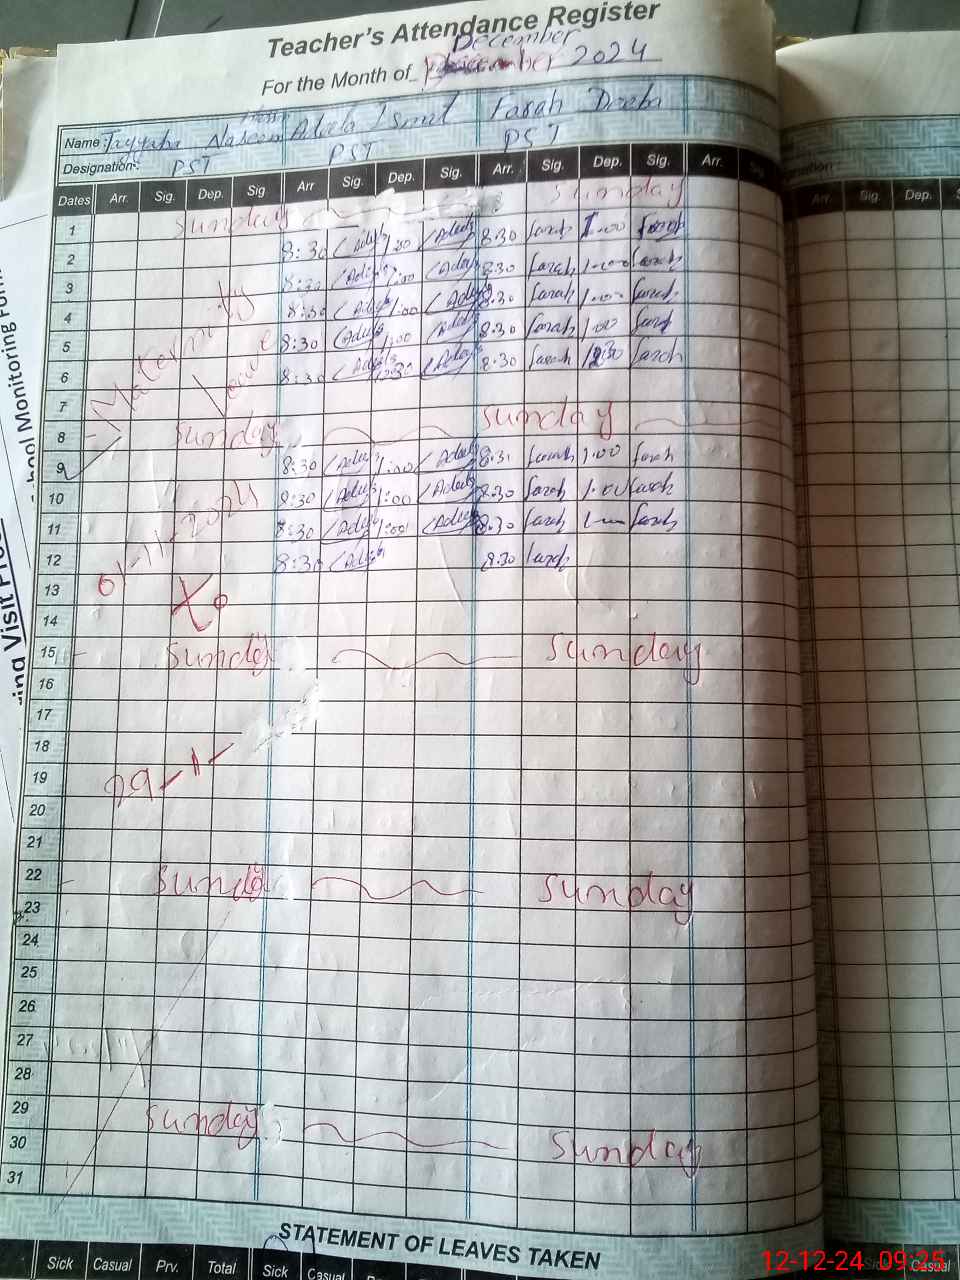 Teacher's Attendance Register
December
For the Month of December 2024
Name: Tayyaba Naseem Adeela Ismat Farah Deeba
Designation: PST PST PST
Dates Arr. Sig. Dep. Sig Arr Sig. Dep. Sig. Arr. Sig. Dep. Sig. Arr.
1 Sunday Sunday
2 8:30 Adeela 1:00 Adeela 8:30 farah 1:00 farah
3 8:30 Adeela 1:00 Adeela 8:30 farah 1:00 farah
4 8:30 Adeela 1:00 Adeela 8:30 farah 1:00 farah
5 8:30 Adeela 1:00 Adeela 8:30 farah 1:00 farah
6 8:30 Adeela 12:30 Adeela 8:30 farah 12:30 farah
Maternity
Leave
7
8 Sunday sunday
9 8:30 Adeela 1:00 Adeela 8:30 farah 1:00 farah
10 8:30 Adeela 1:00 Adeela 8:30 farah 1:00 farah
11 8:30 Adeela 1:00 Adeela 8:30 farah farah
12 8:30 Adeela 8:30 farah
01-11-2024
13
To
14
15 Sunday Sunday
16
17
18
19 29-1-
20
21
22 Sunday Sunday
23
24
25
26
27
28
29 Sunday Sunday
30
31
STATEMENT OF LEAVES TAKEN
Sick Casual Prv. Total Sick Casual
Arr. Sig. Dep.
Casual
hool Monitoring Form
ing Visit
12-12-24 09:25